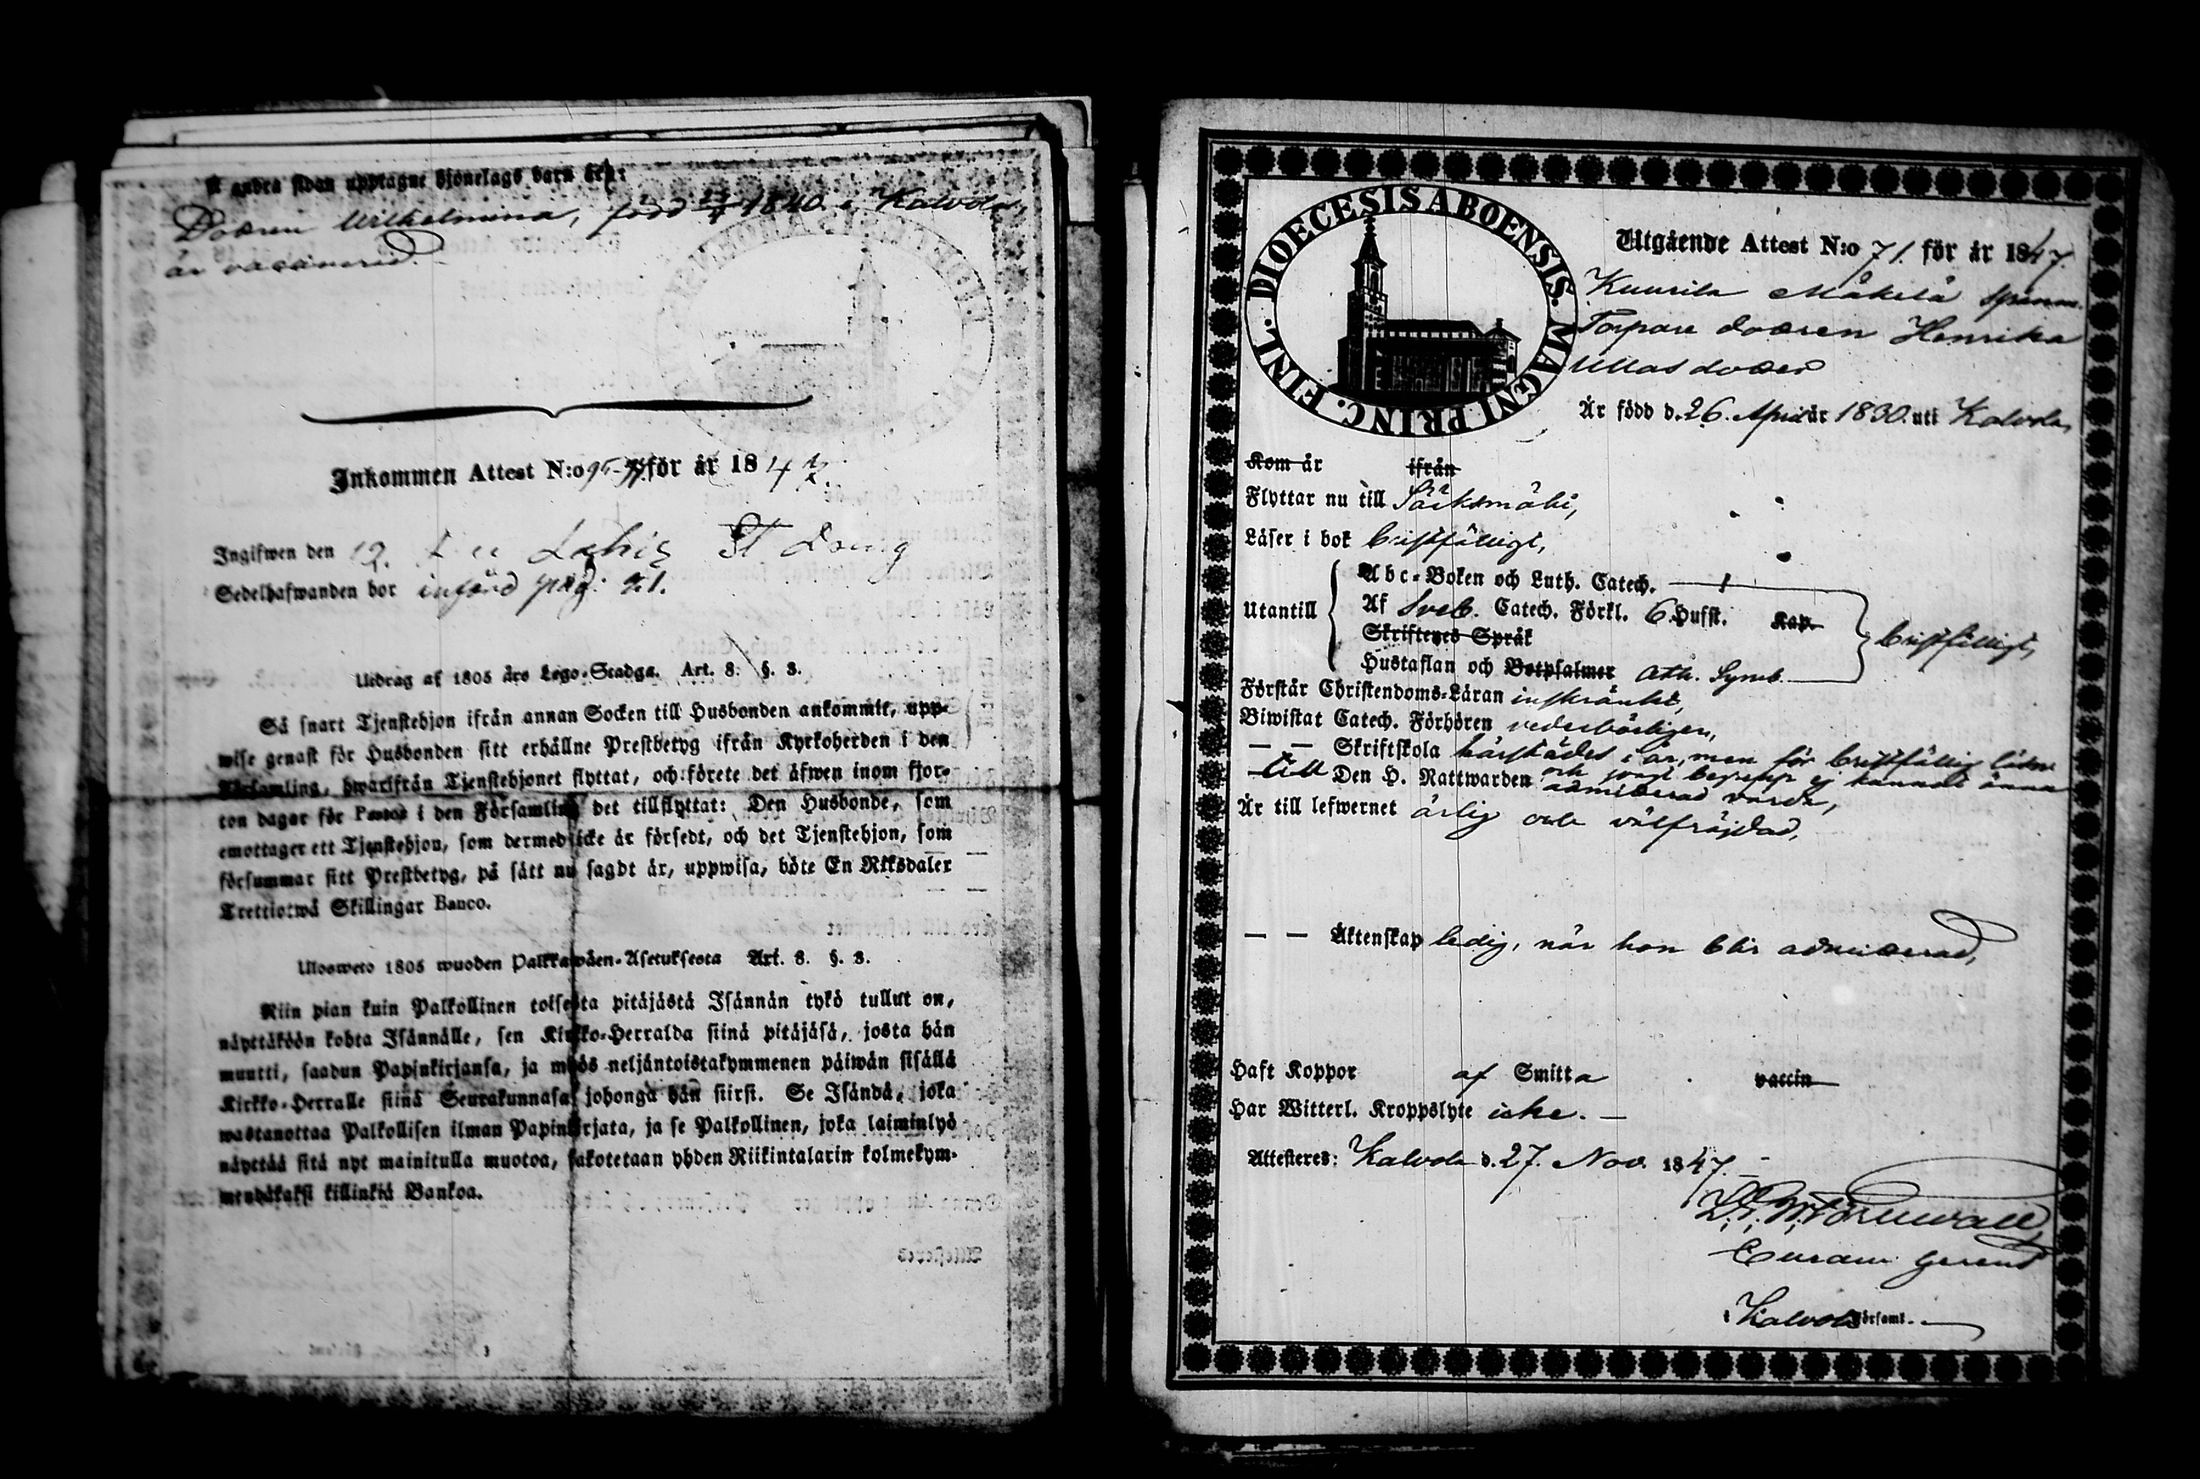 å andra sidan upptagne hjonelags barn är:
Dottren Wilhelmina, född 1840 i Kalvola,
är vaccinerad.
Inkommen Attest N:o för år 184
Ingifwen den 12.
Sedelhafwanden bor införd pag: 21.
Utdrag af 1805 års Lego-Stadga. Art. 8. §. 3.
Så snart Tjenstehjon ifrån annan Socken till Husbonden ankommit, upp-
wise genast för Husbonden sitt erhållne Prestbetyg ifrån Kyrkoherden i den
Församling, hwarifrån Tjenstehjonet flyttat, och förete det äfwen inom fjor-
ton dagar för Pastor i den Församling det tillflyttat: Den Husbonde, som
emottager ett Tjenstehjon, som dermed icke är försedt, och det Tjenstehjon, som
försummar sitt Prestbetyg, på sätt nu sagdt är, uppwisa, böte En Riksdaler
Trettiotwå Skillingar Banco.
Ulosweto 1805 wuoden Palkkawäen-Asetuksesta Art. 8. §. 3.
Niin pian kuin Palkollinen toisesta pitäjästä Isännän tykö tullut on,
näyttäköön kohta Isännälle, sen Kirkko-Herralda siinä pitäjäsä, josta hän
muutti, saadun Papinkirjansa, ja myös neljäntoistakymmenen päiwän sisällä
Kirkko-Herralle siinä Seurakunnasa johonga hän siirsi. Se Isändä, joka
wastanottaa Palkollisen ilman Papinkirjata, ja se Palkollinen, joka laiminlyö
näyttää sitä nyt mainitulla muotoa, sakotetaan yhden Riikintalarin kolmekym-
mendäkaksi killinkiä Bankoa.
DIOECESIS ABOENSIS. MAGNI PRINC. FINL.
Utgående Attest N:o 71. för år 1847.
Kuurila Mäkelä spinn.
Torpare dottren Henrika
Ullasdotter
Är född d. 26. April år 1830. uti Kalvola,
Kom år ifrån
Flyttar nu till Sääksmäki,
Läser i bok bristfälligt,
Abc-Boken och Luth. Catech.
Utantill
Af Sveb. Catech. Förkl. 6 Hufst. Kap.
Skriftenes Språk
bristfälligt,
Hustaflan och Botpsalmer Ath. Symb.
Förstår Christendoms-Läran inskränkt,
Biwistat Catech. Förhören vederbörligen,
— — Skriftskola härstädes i år, men för bristfällig läsn.
och svagt begrepp ej kunnat ännu
till Den H. Nattwarden admitterad varda,
Är till lefwernet ärlig och välfräjdad,
— — Äktenskap ledig, när hon blir admitterad,
Haft Koppor af Smitta vaccin
Har Witterl. Kroppslyte icke. —
Attesteres: Kalvola d. 27. Nov. 1847. —
Curam gerens
i Kalvola Församl.